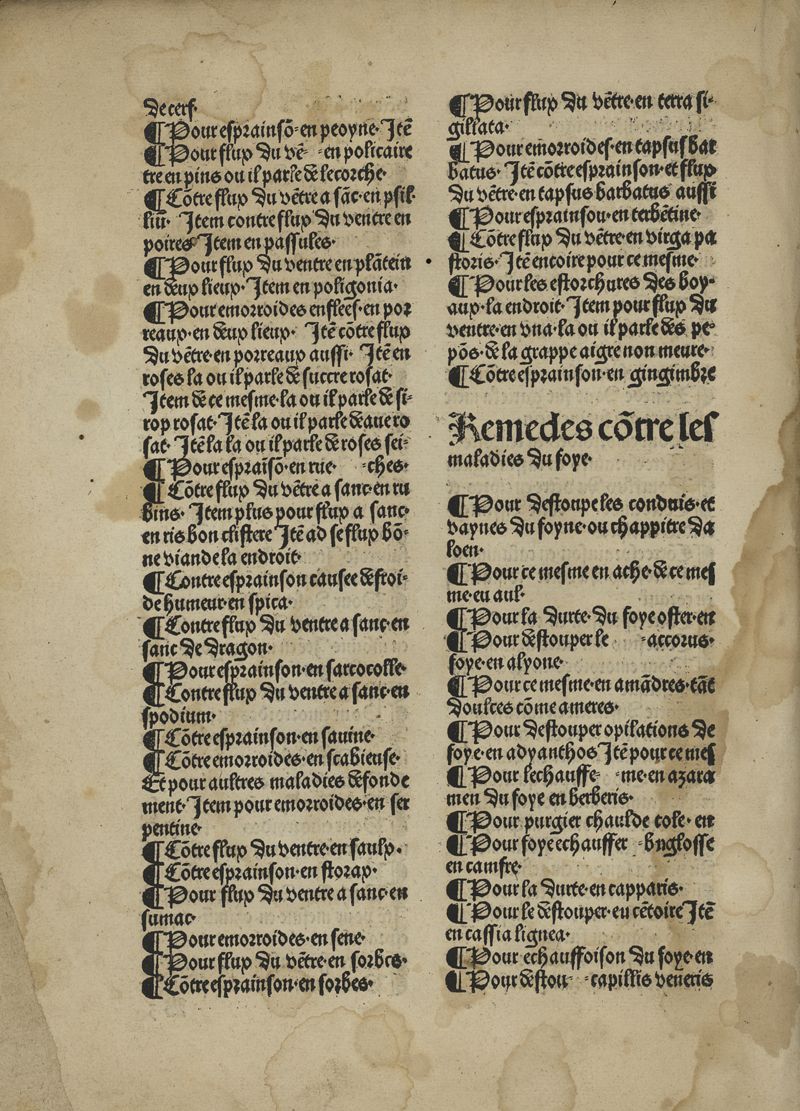 de cerf.
¶ Pour esprainsõ-en peoyne. Itẽ
¶ Pour flux du vẽ- -en policaire
tre en pins ou il parle de lecorche.
¶ Cõtre flux du vẽtre a sãc.en psil
liũ. Item contre flux du ventre en
poires Item en passules.
¶ Pour flux du ventre en plãtein
en deux lieux. Item en poligonia.
¶ Pour emorroides enflees.en por
reaux.en deux lieux. Itẽ cõtre flux
du vẽtre en porreaux aussi. Itẽ en
roses la ou il parle de succre rosat.
Item de ce mesme.la ou il parle de si-
rop rosat. Itẽ la ou il parle de aue ro
sat. Itẽ la la ou il parle de roses sei-
¶ Pour espraĩsõ.en rue. -ches.
¶ Cõtre flux du vẽtre a sanc.en ru
bins. Item plus pour flux a sanc.
en ris bon clistere Itẽ ad se flux bõ-
ne viande la endroit.
¶ Contre esprainson causee de froi-
de humeur.en spica.
¶ Contre flux du ventre a sanc.en
sanc de dragon.
¶ Pour esprainson.en sarcocolle.
¶ Contre flux du ventre a sanc.en
spodium.
¶ Cõtre esprainson.en sauine.
¶ Cõtre emorroides.en scabieuse.
Et pour aultres maladies de fonde
ment. Item pour emorroides.en ser
pentine.
¶ Cõtre flux du ventre.en saulx.
¶ Cõtre esprainson.en storax.
¶ Pour flux du ventre a sanc.en
sumac.
¶ Pour emorroides.en sene.
¶ Pour flux du vẽtre.en sorbes.
¶ Cõtre esprainson.en sorbes.
¶ Pour flux du vẽtre.en terra si-
gillata.
¶ Pour emorroides.en tapsus bar
batus. Itẽ cõtre esprainson.et flux
du vẽtre.en tapsus barbatus aussi
¶ Pour esprainsou.en terbẽtine.
¶ Cõtre flux du vẽtre.en virga pa
storis. Itẽ encoire pour ce mesme.
¶ Pour les estorchures des boy-
aux.la endroit. Item pour flux du
ventre.en vua.la ou il parle des pe-
põs.de la grappe aigre non meure.
¶ Cõtre esprainson.en gingimbre
Remedes cõtre les
maladies du foye.
¶ Pour destoupe les conduis.et
vaynes du foyne.ou chappitre da
loen.
¶ Pour ce mesme en ache.de ce mes
me eu aul.
¶ Pour la durte.du foye oster.en
¶ Pour destouper le -accorus.
foye.en alyone.
¶ Pour ce mesme.en amãdres.tãt
doulces cõme ameres.
¶ Pour destouper opilations de
foye.en adyanthos Itẽ pour ce mes
¶ Pour lechauffe- -me.en azara
men du foye en berberis.
¶ Pour purgier chaulde cole. en
¶ Pour foye echauffer -buglosse
en camfre.
¶ Pour la durte.en capparis.
¶ Pour le destouper.eu cẽtoire Itẽ
en cassia lignea.
¶ Pour echauffoison du foye.en
¶ Pour destou- -capillis veneris